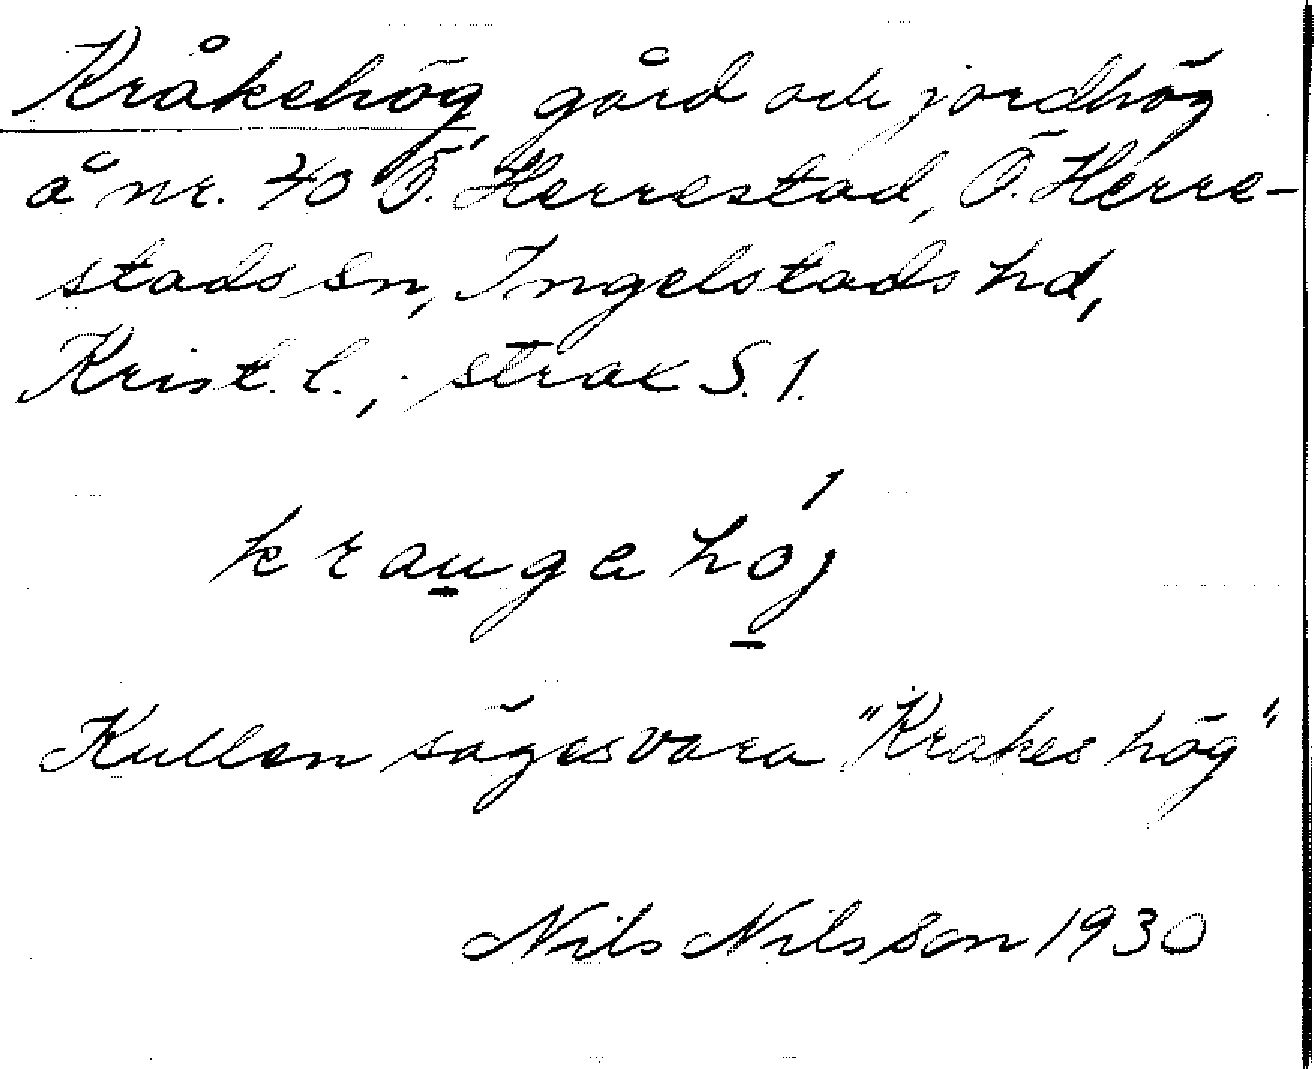 Kråkehög, gård och jordhög
å nr. 40 Ö. Herrestad, Ö. Herre-
stads sn, Ingelstads hd,
Krist. l., strax S. 1.
kraugahöj
Kullen säges vara "Krakes hög"
Nils Nilsson 1930